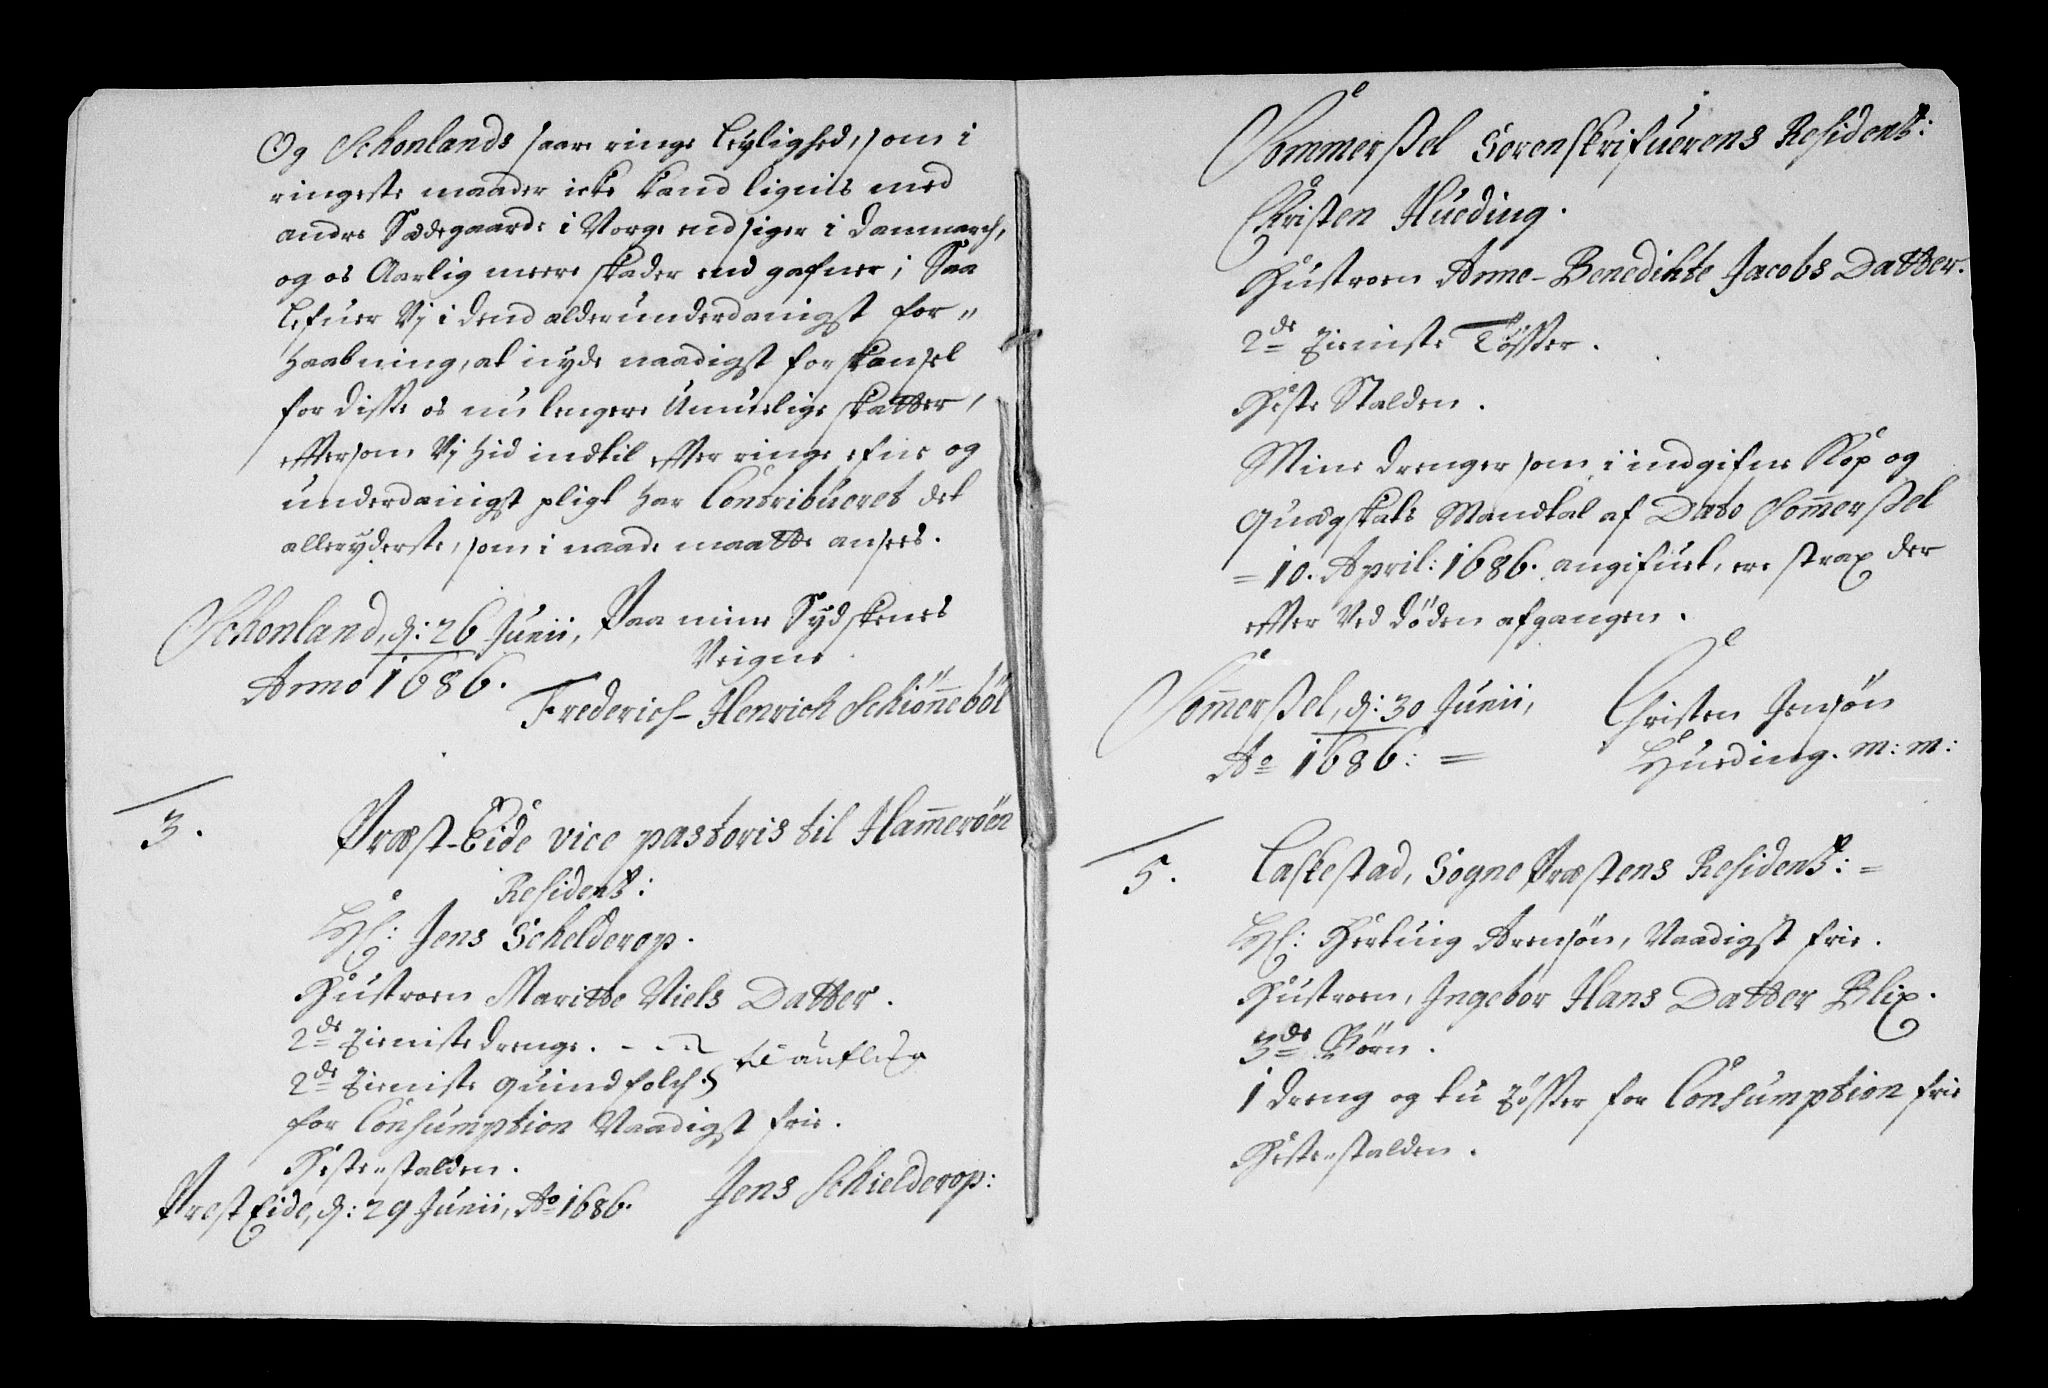 Og Schonlands saare ringe leylighed, som i
ringeste maader icke kand lignis med
andre Sædegaarde i Norge endsiger i Danmarch,
og os Aarlig meere skader end gafner; Saa
lefuer Vj i dend alderunderdanigst for„
haabning, at nyde naadigst forskaansel
for disse os nu lengere Umuelige skatter,
eftersom Vj hid indtil efter ringe efne og
underdanigst pligt har Contribueret det
alleryderste, som i naade maatte ansees.
Schonland, d: 26 Junii, Paa mine Sydskenes
Veigne
Anno 1686.
Frederich-Henrich Schiönnebøl
3.
Præst-Eide vice pastoris til Hammerøen
Residentz:
Hr: Jens Schelderop.
Hustroen Maritte Niels Datter.
2de Tieniste drenge.
2de Tieniste quindfolch.
for Consumption Naadigst frie.
Heste„stalden.
Præst Eide, d: 29 Junii, Ao 1686. Jens Schielderop:
Sommerssel Sorenskrifuerens Residentz:
Christen Hueding.
Hustroen Anne-Benedihte Jacobs Datter.
2de Tieniste Tösser.
Heste Stalden.
Mine drenger som i indgifne Kop og
quægskats Mandtal af Dato Sommerssel
= 10. April: 1686. angifuet, ere strax der
efter Ved døden afgangen.
Sommerssel, d: 30 Junii,
Ao 1686: =
Christen Jensøn
Hueding. m: m:
5.
Laskestad, Sogne Præstens Residentz: =
Hr: Hertuig Arensøn, Naadigst frie.
Hustroen, Ingebor Hans Datter Blix.
3de Børn.
1 dreng og tu tösser for Consumption frie
Heste„stalden.